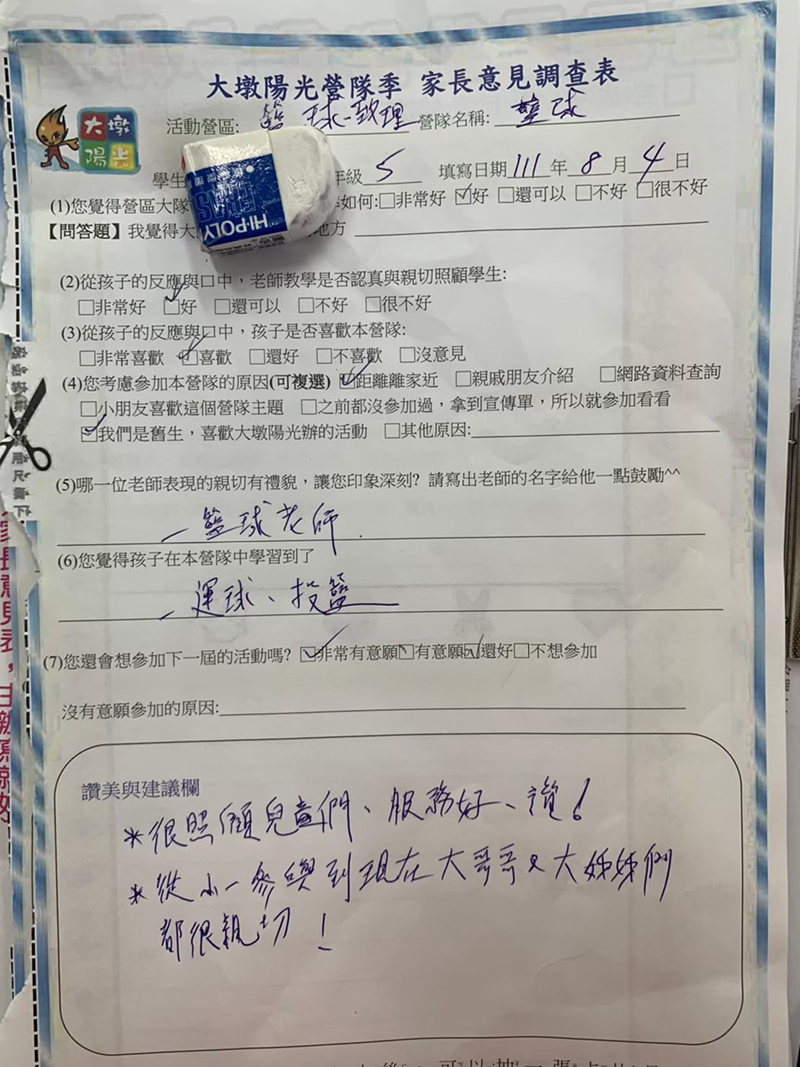 大墩陽光營隊季 家長意見調查表
大墩
陽光
活動營區: 籃球-敦理 營隊名稱: 籃球
學生 年級 5 填寫日期 111 年 8 月 4 日
HI-POLY
(1)您覺得營區大隊 如何:□非常好 ☑好 □還可以 □不好 □很不好
【問答題】我覺得大 地方
(2)從孩子的反應與口中，老師教學是否認真與親切照顧學生:
□非常好 ☑好 □還可以 □不好 □很不好
(3)從孩子的反應與口中，孩子是否喜歡本營隊:
□非常喜歡 ☑喜歡 □還好 □不喜歡 □沒意見
(4)您考慮參加本營隊的原因(可複選) ☑距離離家近 □親戚朋友介紹 □網路資料查詢
□小朋友喜歡這個營隊主題 □之前都沒參加過，拿到宣傳單，所以就參加看看
☑我們是舊生，喜歡大墩陽光辦的活動 □其他原因:
(5)哪一位老師表現的親切有禮貌，讓您印象深刻? 請寫出老師的名字給他一點鼓勵^^
籃球老師.
(6)您覺得孩子在本營隊中學習到了
運球、投籃
(7)您還會想參加下一屆的活動嗎? ☑非常有意願□有意願☑還好□不想參加
沒有意願參加的原因:
讚美與建議欄
*很照顧兒童們、服務好、讚!
*從小一參與到現在大哥哥&大姊姊們
都很親切!